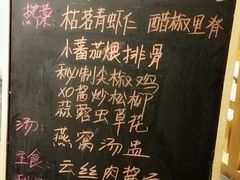 热菜 枯茗青虾仁 醋椒里脊
小番茄煨排骨
秘制尖椒鸡
XO酱炒松柳
蒜蓉虫草花
汤: 燕窝汤盅
主食 云丝肉酱